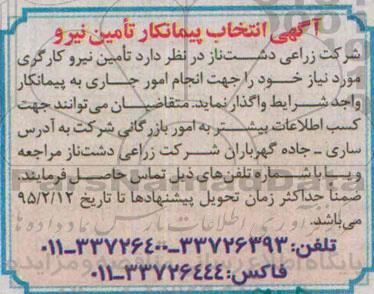 آگهی انتخاب پیمانکار تأمین نیرو
شرکت زراعی دشت‌ناز در نظر دارد تأمین نیرو کارگری
مورد نیاز خود را جهت انجام امور جاری به پیمانکار
واجد شرایط واگذار نماید. متقاضیان می‌توانند جهت
کسب اطلاعات بیشتر به امور بازرگانی شرکت به آدرس
ساری - جاده گهرباران شرکت زراعی دشت‌ناز مراجعه
و یا با شماره تلفن‌های ذیل تماس حاصل فرمایند.
ضمناً حداکثر زمان تحویل پیشنهادها تا تاریخ ۹۵/۲/۱۲
می‌باشد.
تلفن: ۳۳۷۲۶۳۹۳-۳۳۷۲۶۴۰۰-۰۱۱
فاکس: ۳۳۷۲۶۴۴۴-۰۱۱